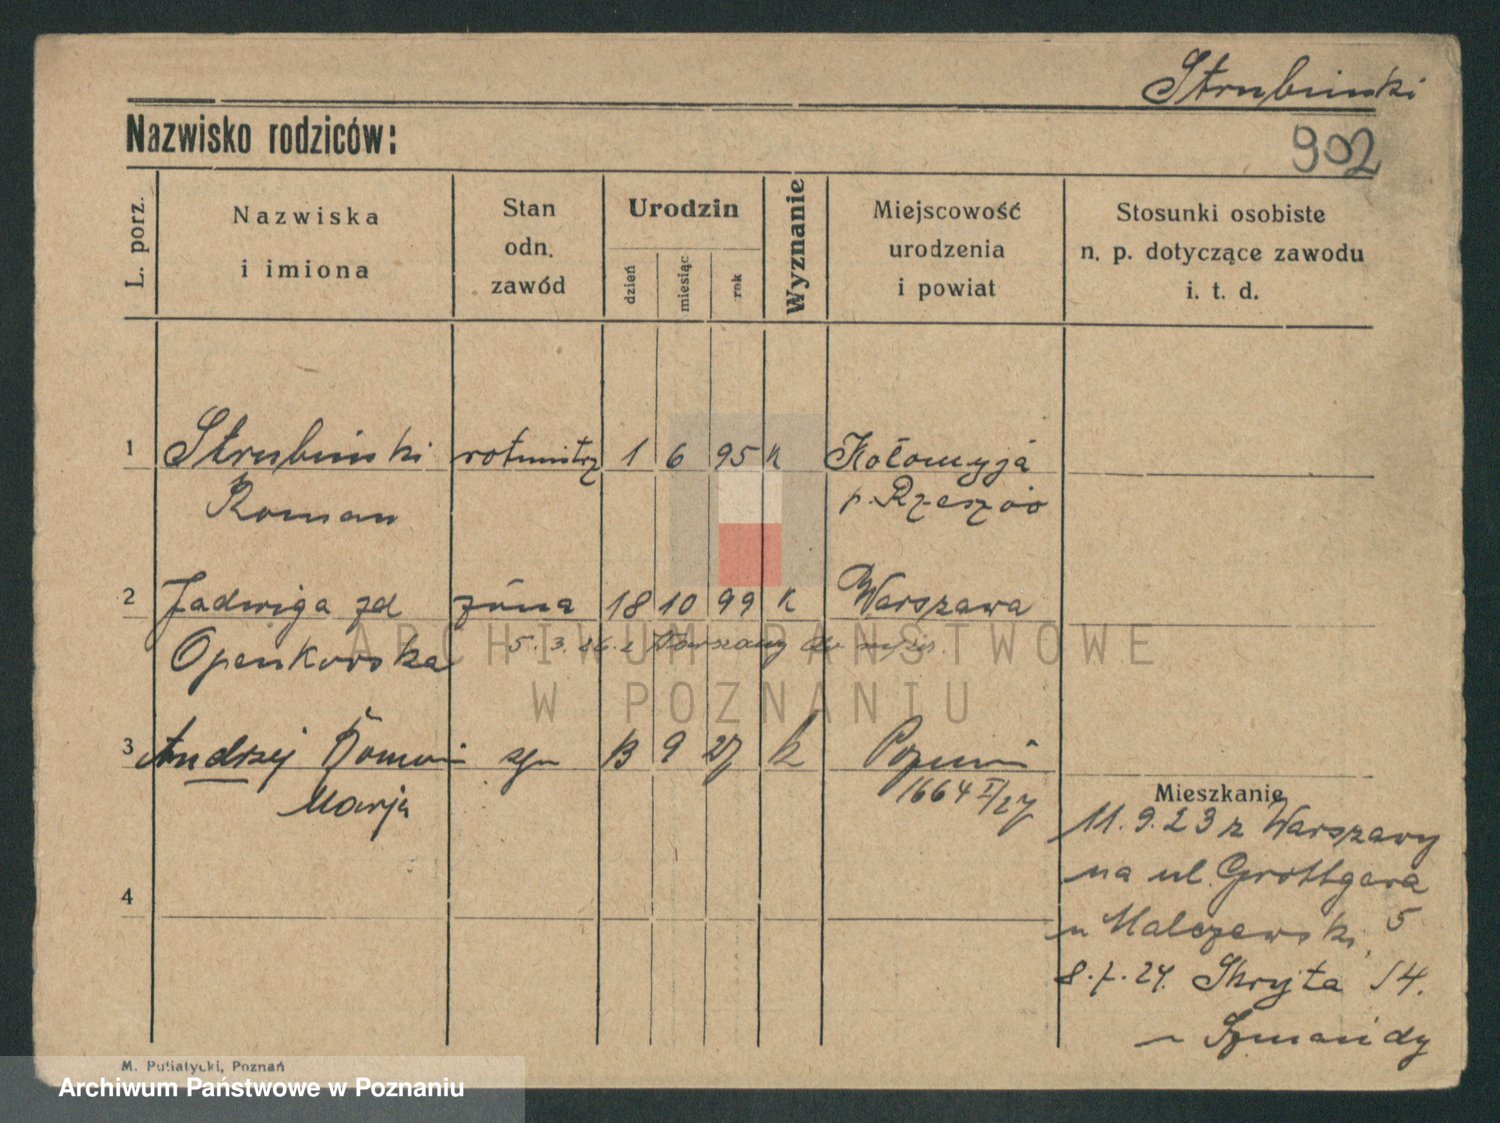 Strubiński
Nazwisko rodziców:
902
L. porz.
Nazwiska
i imiona
Stan
odn.
zawód
Urodzin
dzień
miesiąc
rok
Wyznanie
Miejscowość
urodzenia
i powiat
Stosunki osobiste
n. p. dotyczące zawodu
i. t. d.
1 Strubiński rotmistrz 1 6 95 k Kołomyja
Roman p. Rzeszów
2 Jadwiga zd żona 18 10 99 k Warszawa
Openkowska 5.3.26. z Warszawy do
3 Andrzej Roman syn 13 9 27 k Poznań
Marja 1664 I/27
Mieszkanie
11.9.23 z Warszawy
na ul. Grottgera 5
u Malczewski
8.7.24. Skryta 14.
Szmandy
4
M. Putiatycki, Poznań
ARCHIWUM PAŃSTWOWE
W POZNANIU
Archiwum Państwowe w Poznaniu